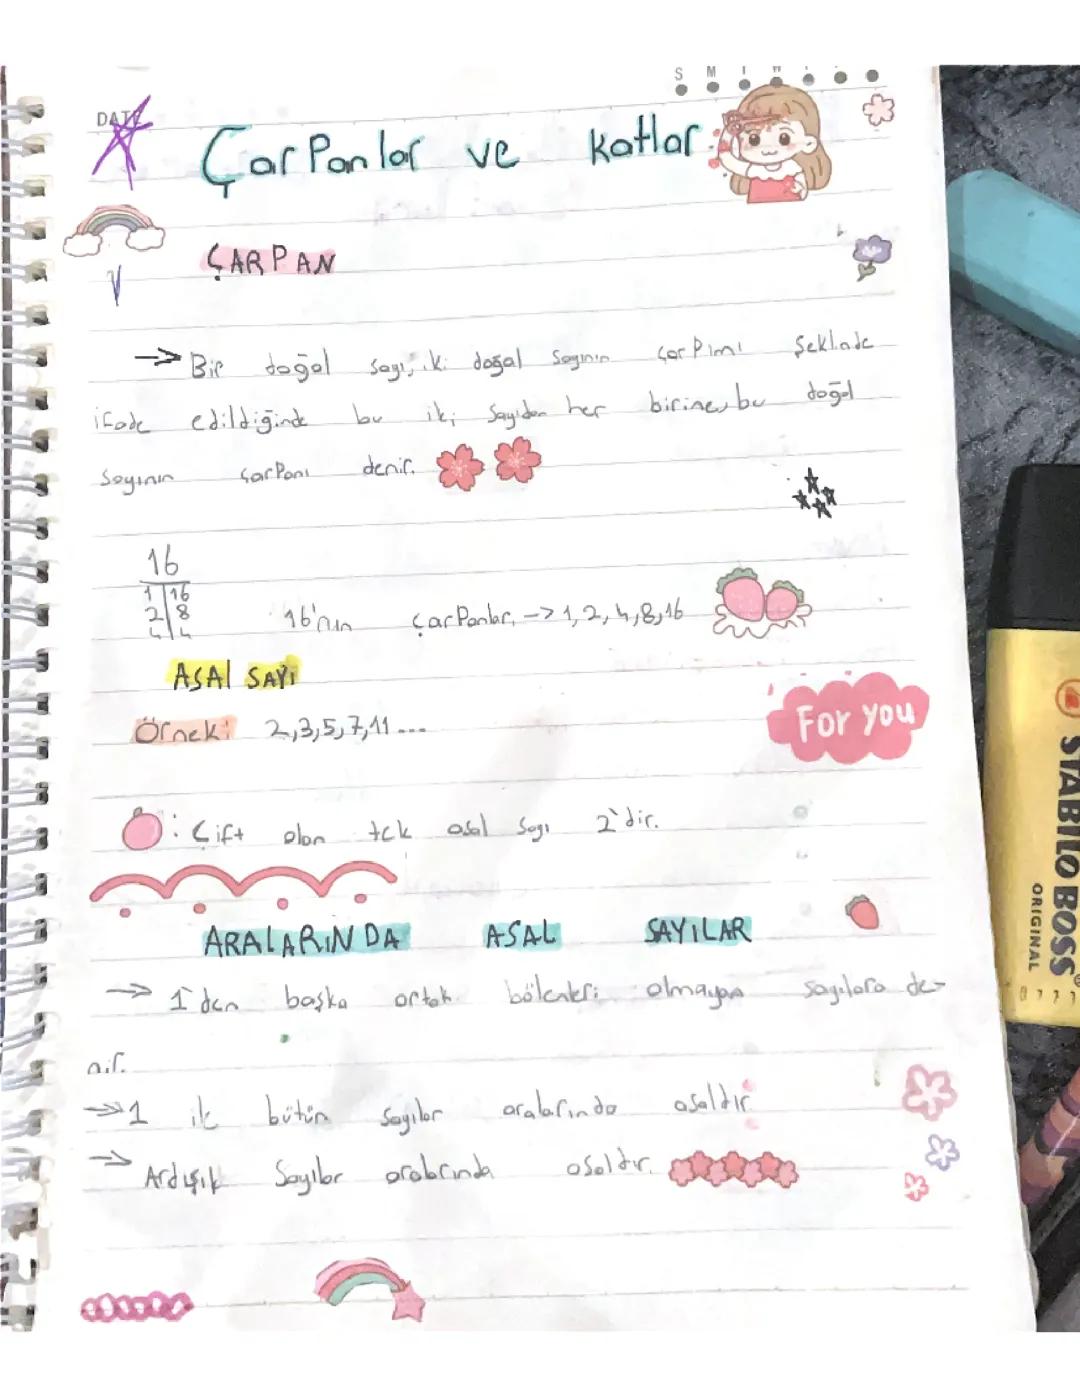 S M T W
DATE
Çarpanlar ve katlar
ÇARPAN
→ Bir doğal sayı, iki doğal sayının çarpımı şeklinde
ifade edildiğinde bu iki sayıdan her birine, bu doğal
sayının çarpanı denir.
16
1 | 16
2 | 8
4 | 4
16'nın çarpanları → 1, 2, 4, 8, 16
ASAL SAYI
Örnek: 2, 3, 5, 7, 11 ...
For you
: Çift olan tek asal sayı 2'dir.
ARALARINDA ASAL SAYILAR
→ 1'den başka ortak bölenleri olmayan sayılara de-
nir.
→ 1 ile bütün sayılar aralarında asaldır.
→ Ardışık sayılar aralarında asaldır.
STABILO BOSS
ORIGINAL